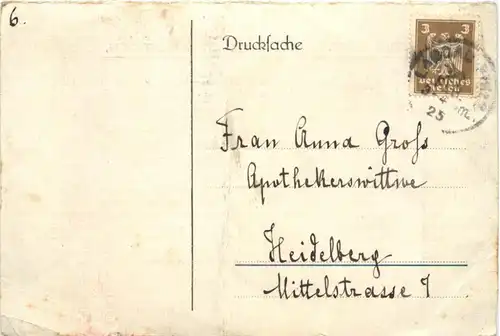 6.
Drucksache
3 3
Deutsches
Reich
25
Frau Anna Groß
Apothekerswittwe
Heidelberg
Mittelstrasse 7